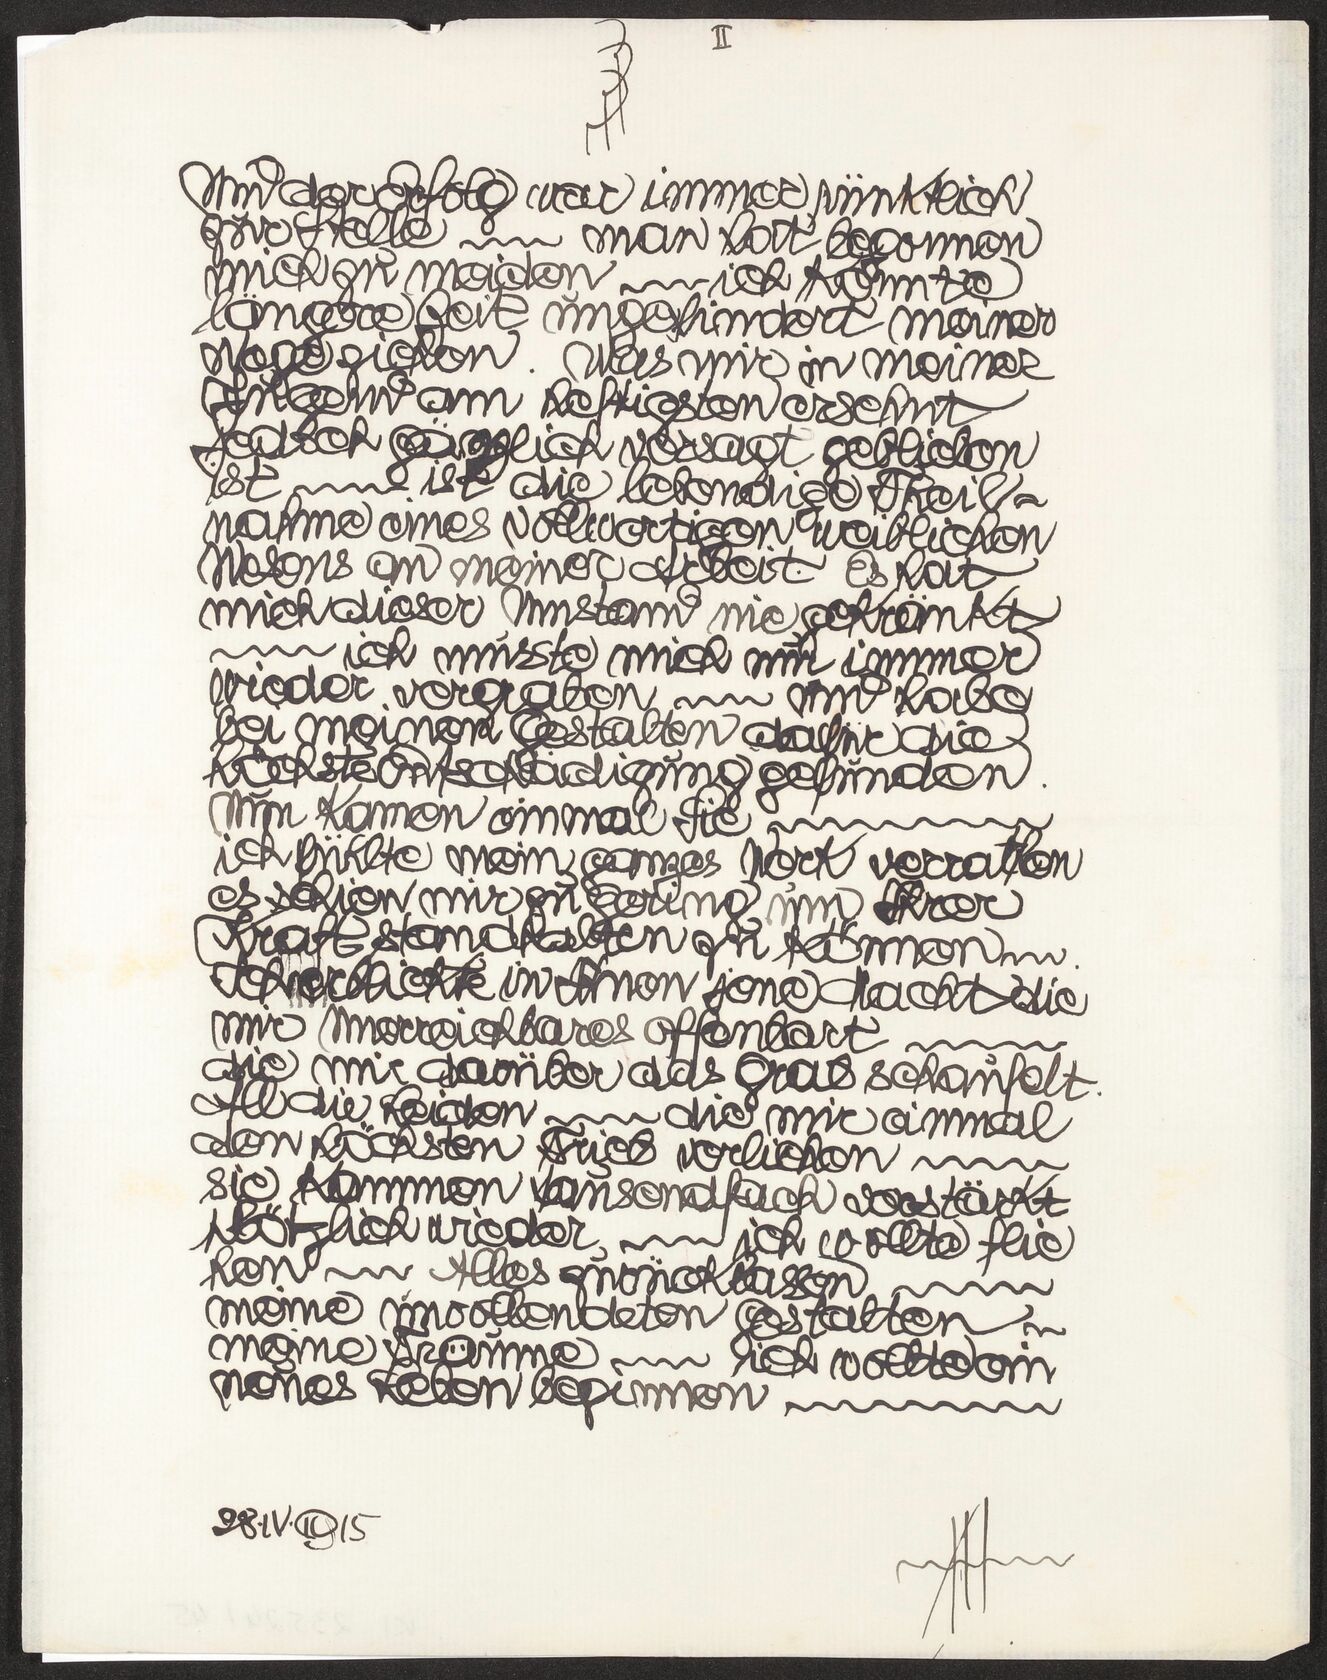 II
Und der Erfolg war immer pünktlich
zur Stelle ~~ man hat begonnen
mich zu meiden ~~ ich konnte
längere Zeit ungehindert meiner
Wege ziehen. Was mir in meiner
Jugend am heftigsten ersehnt
jedoch gänzlich versagt geblieben
ist ~~ ist die lebendige Theil-
nahme eines vollwertigen weiblichen
Wesens an meiner Arbeit. Es hat
mich dieser Umstand nie gekränkt
~~ ich musste mich nur immer
wieder vergraben ~~ und habe
bei meinen Gestalten dafür die
höchste Entschädigung gefunden.
Nun kamen einmal Sie ~~
ich fühlte mein ganzes Werk verrathen
es schien mir zu gering um Ihrer
Kraft standhalten zu können ~~.
Ich erblickte in Ihnen jene Macht die
mir Unerreichbares offenbart ~~
die mir darüber das Grab schaufelt.
All die Leiden ~~ die mir einmal
den höchsten Trieb verliehen ~~
sie kommen tausendfach verstärkt
plötzlich wieder, ~~ ich wollte flie
hen ~~ Alles zurücklassen ~~
meine unvollendeten Gestalten ~~
meine Träume ~~ ich wollte ein
neues Leben beginnen ~~
28.IV.1915